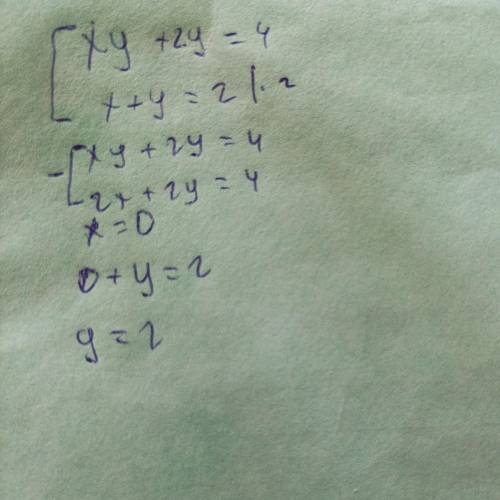 xy + 2y = 4
x + y = 2 | · 2
- xy + 2y = 4
2x + 2y = 4
x = 0
0 + y = 2
y = 2